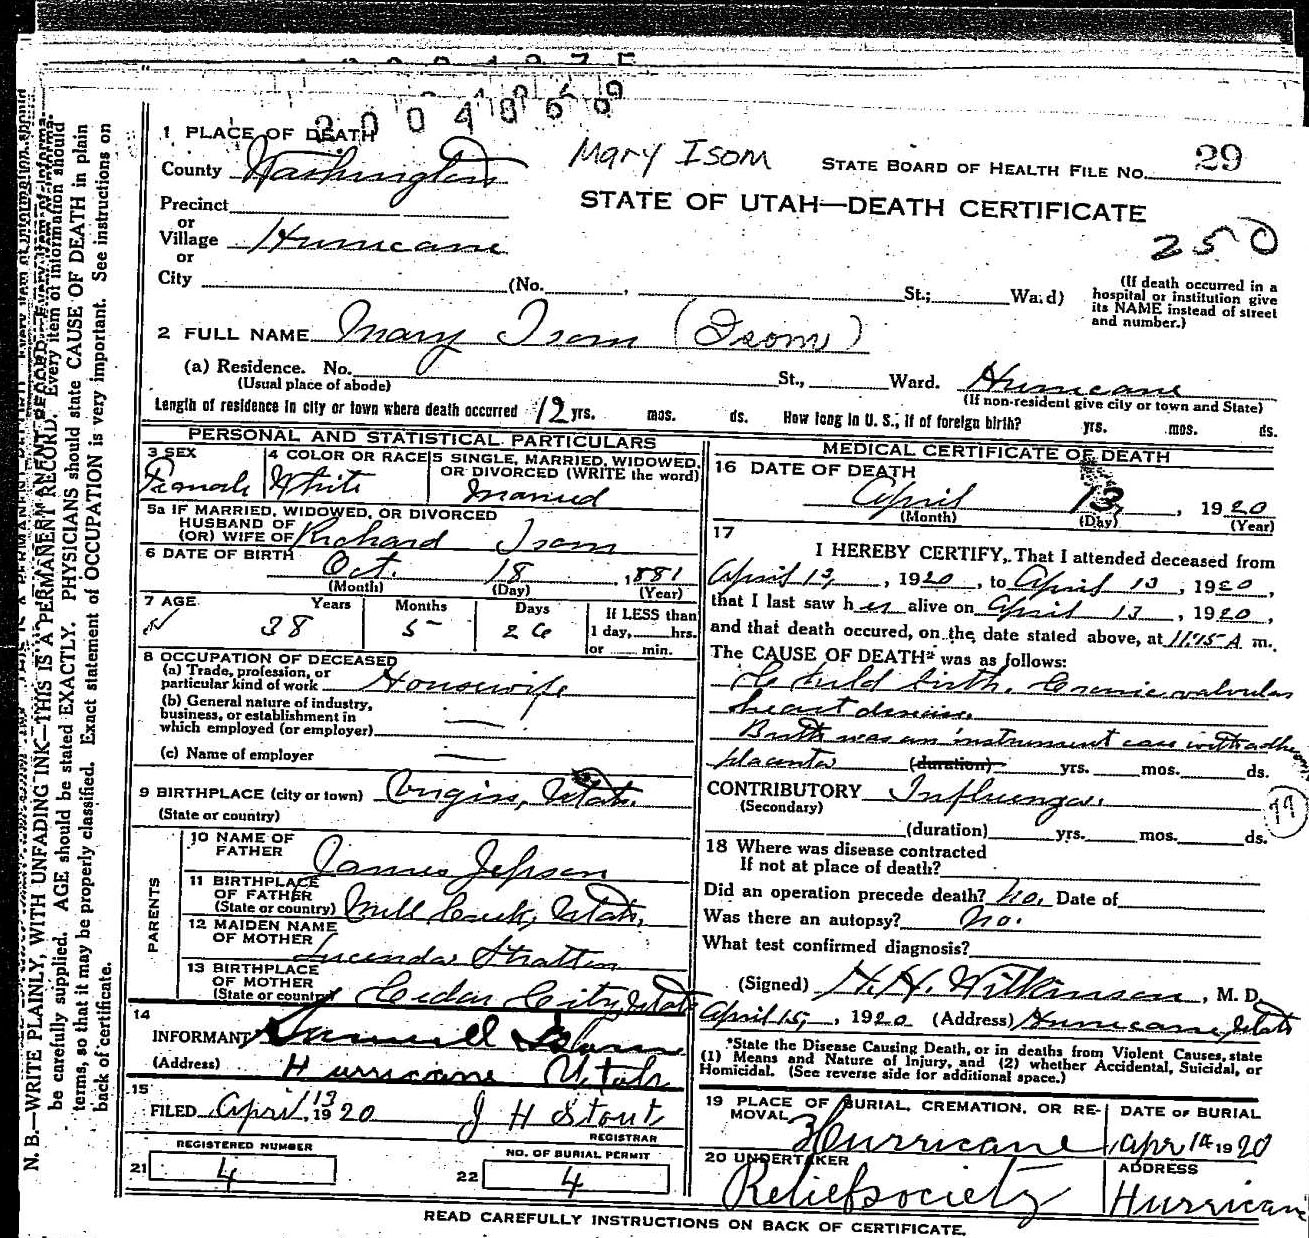 2004069
1 PLACE OF DEATH
County Washington
Mary Isom
STATE BOARD OF HEALTH FILE NO. 29
STATE OF UTAH—DEATH CERTIFICATE
Precinct
or
Village Hurricane
250
or
City (No. , St.; Wa.d)
(If death occurred in a
hospital or institution give
its NAME instead of street
and number.)
2 FULL NAME Mary Isom (Isom)
(a) Residence. No. St., Ward. Hurricane
(Usual place of abode)
(If non-resident give city or town and State)
Length of residence in city or town where death occurred 12 yrs. mos. ds. How long in U. S., if of foreign birth? yrs. mos. ds.
PERSONAL AND STATISTICAL PARTICULARS
3 SEX
Female
4 COLOR OR RACE
White
5 SINGLE, MARRIED, WIDOWED,
OR DIVORCED (WRITE the word)
Married
5a IF MARRIED, WIDOWED, OR DIVORCED
HUSBAND OF
(OR) WIFE OF Richard Isom
6 DATE OF BIRTH Oct. 18 , 1881
(Month) (Day) (Year)
7 AGE Years Months Days
38 5 26
If LESS than
1 day, hrs.
or min.
8 OCCUPATION OF DECEASED
(a) Trade, profession, or
particular kind of work Housewife
(b) General nature of industry,
business, or establishment in
which employed (or employer) —
(c) Name of employer —
9 BIRTHPLACE (city or town) Virgin, Utah.
(State or country)
PARENTS
10 NAME OF
FATHER James Jepson
11 BIRTHPLACE
OF FATHER
(State or country) Mill Creek, Utah,
12 MAIDEN NAME
OF MOTHER Lucinda Stratton
13 BIRTHPLACE
OF MOTHER
(State or country) Cedar City, Utah
14
INFORMANT Samuel Isom
(Address) Hurricane Utah
15
FILED April 13 1920 J H Stout
REGISTRAR
REGISTERED NUMBER
21 4
NO. OF BURIAL PERMIT
22 4
MEDICAL CERTIFICATE OF DEATH
16 DATE OF DEATH
April 13, , 1920
(Month) (Day) (Year)
17
I HEREBY CERTIFY, That I attended deceased from
April 13, , 1920 , to April 13 , 1920 ,
that I last saw her alive on April 13 , 1920 ,
and that death occured, on the date stated above, at 11.45 A m.
The CAUSE OF DEATH* was as follows:
Child birth. Cronic valvular
heart disease.
Birth was an instrument case with adherent
placenta (duration) yrs. mos. ds.
CONTRIBUTORY Influenza.
(Secondary)
(duration) yrs. mos. ds.
18 Where was disease contracted
If not at place of death?
Did an operation precede death? No. Date of
Was there an autopsy? No.
What test confirmed diagnosis?
(Signed) H. H. Wilkinson , M. D.
April 15, , 1920 (Address) Hurricane, Utah
*State the Disease Causing Death, or in deaths from Violent Causes, state
(1) Means and Nature of Injury, and (2) whether Accidental, Suicidal, or
Homicidal. (See reverse side for additional space.)
19 PLACE OF BURIAL, CREMATION, OR RE-
MOVAL Hurricane
DATE OF BURIAL
Apr 14 1920
20 UNDERTAKER
Reliefsociety
ADDRESS
Hurricane
READ CAREFULLY INSTRUCTIONS ON BACK OF CERTIFICATE.
N. B.—WRITE PLAINLY, WITH UNFADING INK—THIS IS A PERMANENT RECORD. Every item of information should
be carefully supplied. AGE should be stated EXACTLY. PHYSICIANS should state CAUSE OF DEATH in plain
terms, so that it may be properly classified. Exact statement of OCCUPATION is very important. See instructions on
back of certificate.